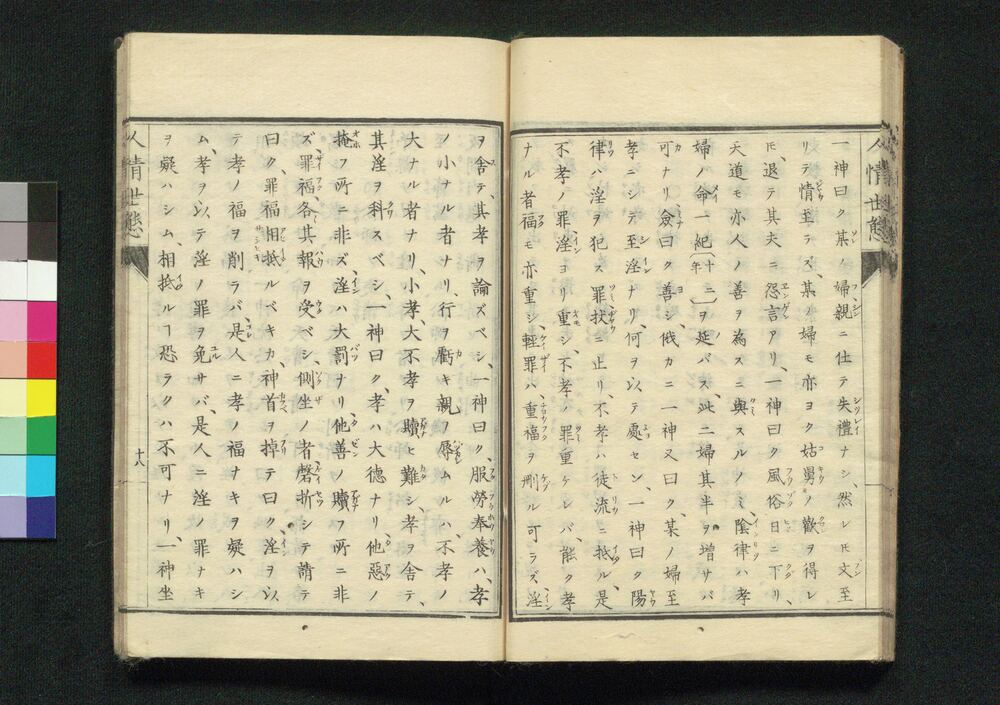 人情世態
一神曰ク某ノ婦親ニ仕テ失禮ナシ、然レㇳモ文至
リテ情至テズ、某ノ婦モ亦ヨク姑舅ノ歡ヲ得レ
ㇳモ、退テ其夫ニ怨言アリ、一神曰ク風俗日ニ下リ、
天道モ亦人ノ善ヲ為スニ與スルノミ、陰律ハ孝
婦ノ命一紀〔十二年〕ヲ延バス、此二婦其半ヲ増サバ
可ナリ、僉曰ク善シ、俄カニ一神又曰ク、某ノ婦至
孝ニシテ至淫ナリ、何ヲ以テ處セン、一神曰ク陽
律ハ淫ヲ犯ス罪杖ニ止リ、不孝ハ徒流ニ抵ル、是
不孝ノ罪淫ヨリ重シ、不孝ノ罪重ケレバ、能ク孝
ナル者福モ亦重シ、輕罪ハ重福ヲ刪ル可ラズ、淫
ヲ舎テ、其孝ヲ論ズベシ、一神曰ク、服勞奉養ハ、孝
ノ小ナル者ナリ、行ヲ虧キ親ヲ辱ムルハ、不孝ノ
大ナル者ナリ、小孝、大不孝ヲ贖ヒ難シ、孝ヲ舎テ、
其淫ヲ科スベシ、一神曰ク、孝ハ大德ナリ、他惡ノ
掩フ所ニ非ズ、淫ハ大罰ナリ、他善ノ贖フ所ニ非
ズ、罪福各〻其報ヲ受ベシ、側坐ノ者磬折シテ請テ
曰ク、罪福相抵ルベキカ、神首ヲ掉テ曰ク、淫ヲ以
テ孝ノ福ヲ削ラバ、是人ニ孝ノ福ナキヲ疑ハシ
ム、孝ヲ以テ淫ノ罪ヲ免サバ、是人ニ淫ノ罪ナキ
ヲ疑ハシム、相抵ルヿ恐ラクハ不可ナリ、一神坐
人情世態
十八